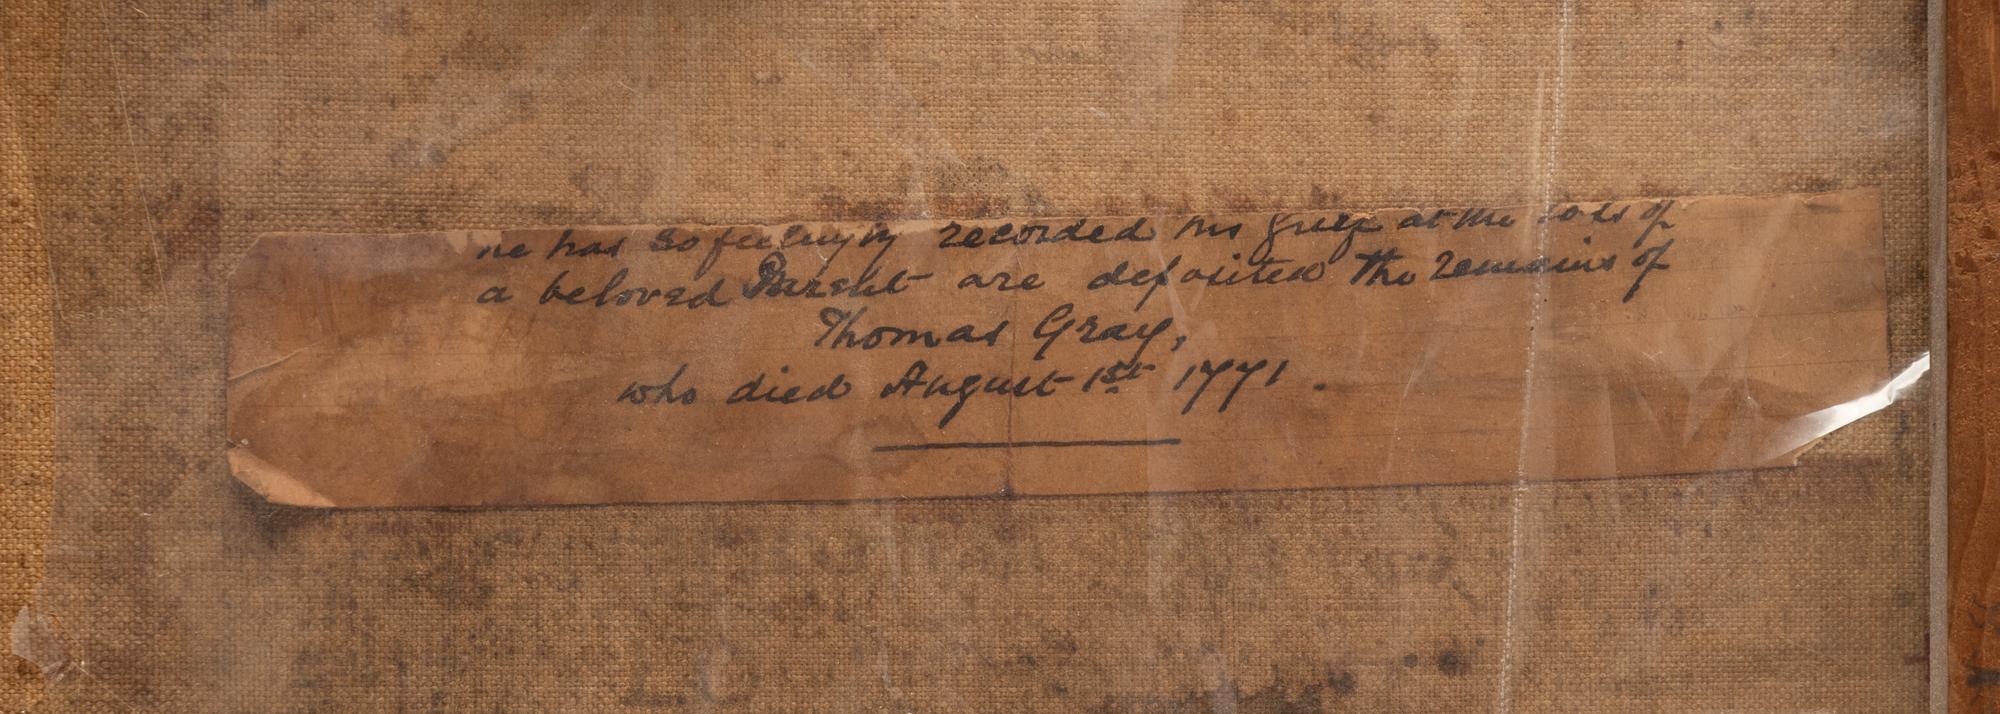 he has so feelingly recorded his grief at the loss of
a beloved Parent are deposited the remains of
Thomas Gray,
who died August 1st 1771.